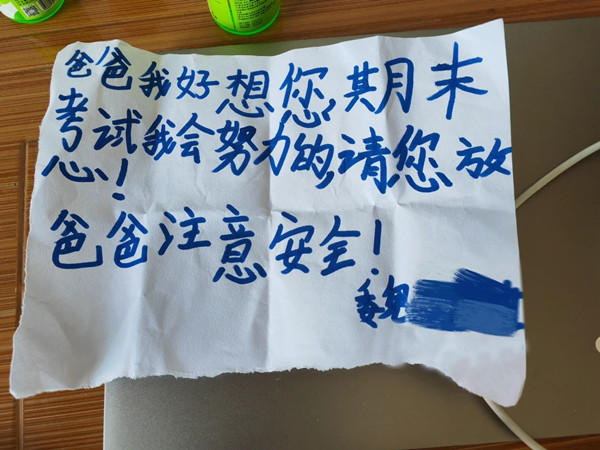 爸爸我好想您,期月末
考试我会努力的,请您放
心!
爸爸注意安全!
魏